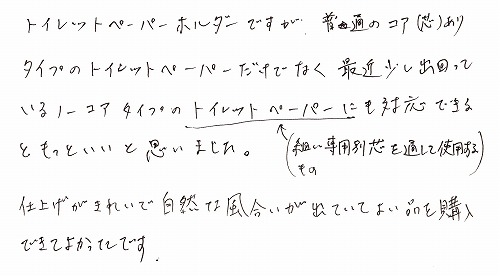 トイレットペーパーホルダーですが、普通のコア(芯)あり
タイプのトイレットペーパーだけでなく最近少し出回って
いるノーコアタイプのトイレットペーパーにも対応できる
ともっといいと思いました。
(細い専用別芯を通して使用する
もの)
仕上げがきれいで自然な風合いが出ていてよい品を購入
できてよかったです.